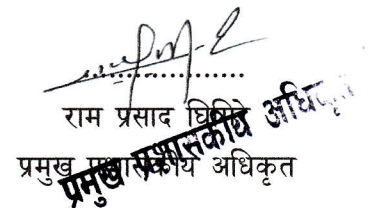 राम प्रसाद घिमिरे
प्रमुख प्रशासकीय अधिकृत
प्रमुख प्रशासकीय अधिकृत